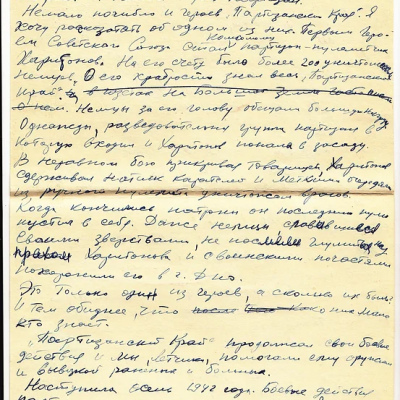 Немало погибло и героев "Партизанский Край". Я
хочу рассказать об одном из них. Первым Геро-
ем Советского Союза стал партизан-пулеметчик
Харитонов. На его счету было более 200 уничтоженных
немцев. О его храбрости знал весь "Партизанский
край"
о нем. Немцы за его голову обещали большую награду
Однажды, разведывательная группа партизан в
которую входил и Харитонов попала в засаду.
В неравном бою прикрывая товарищей Харитонов
сдерживал натиск карателей и меткими очередями
из ручного пулемета уничтожал врагов.
Когда кончились патроны он последнюю пулю
пустил в себя. Даже немцы славившиеся
своими зверствами, не посмели глумиться над
прахом Харитонова и с воинскими почестями
похоронили его в г. Дно.
Это только один из героев, а сколько их было
и тем обиднее, что о них мало
кто знает.
"Партизанский Край" продолжал свои боевые
действия и мы, летчики, помогали ему грузами
и вывозкой раненых и больных.
Наступила осень 1942 года. Боевые действия